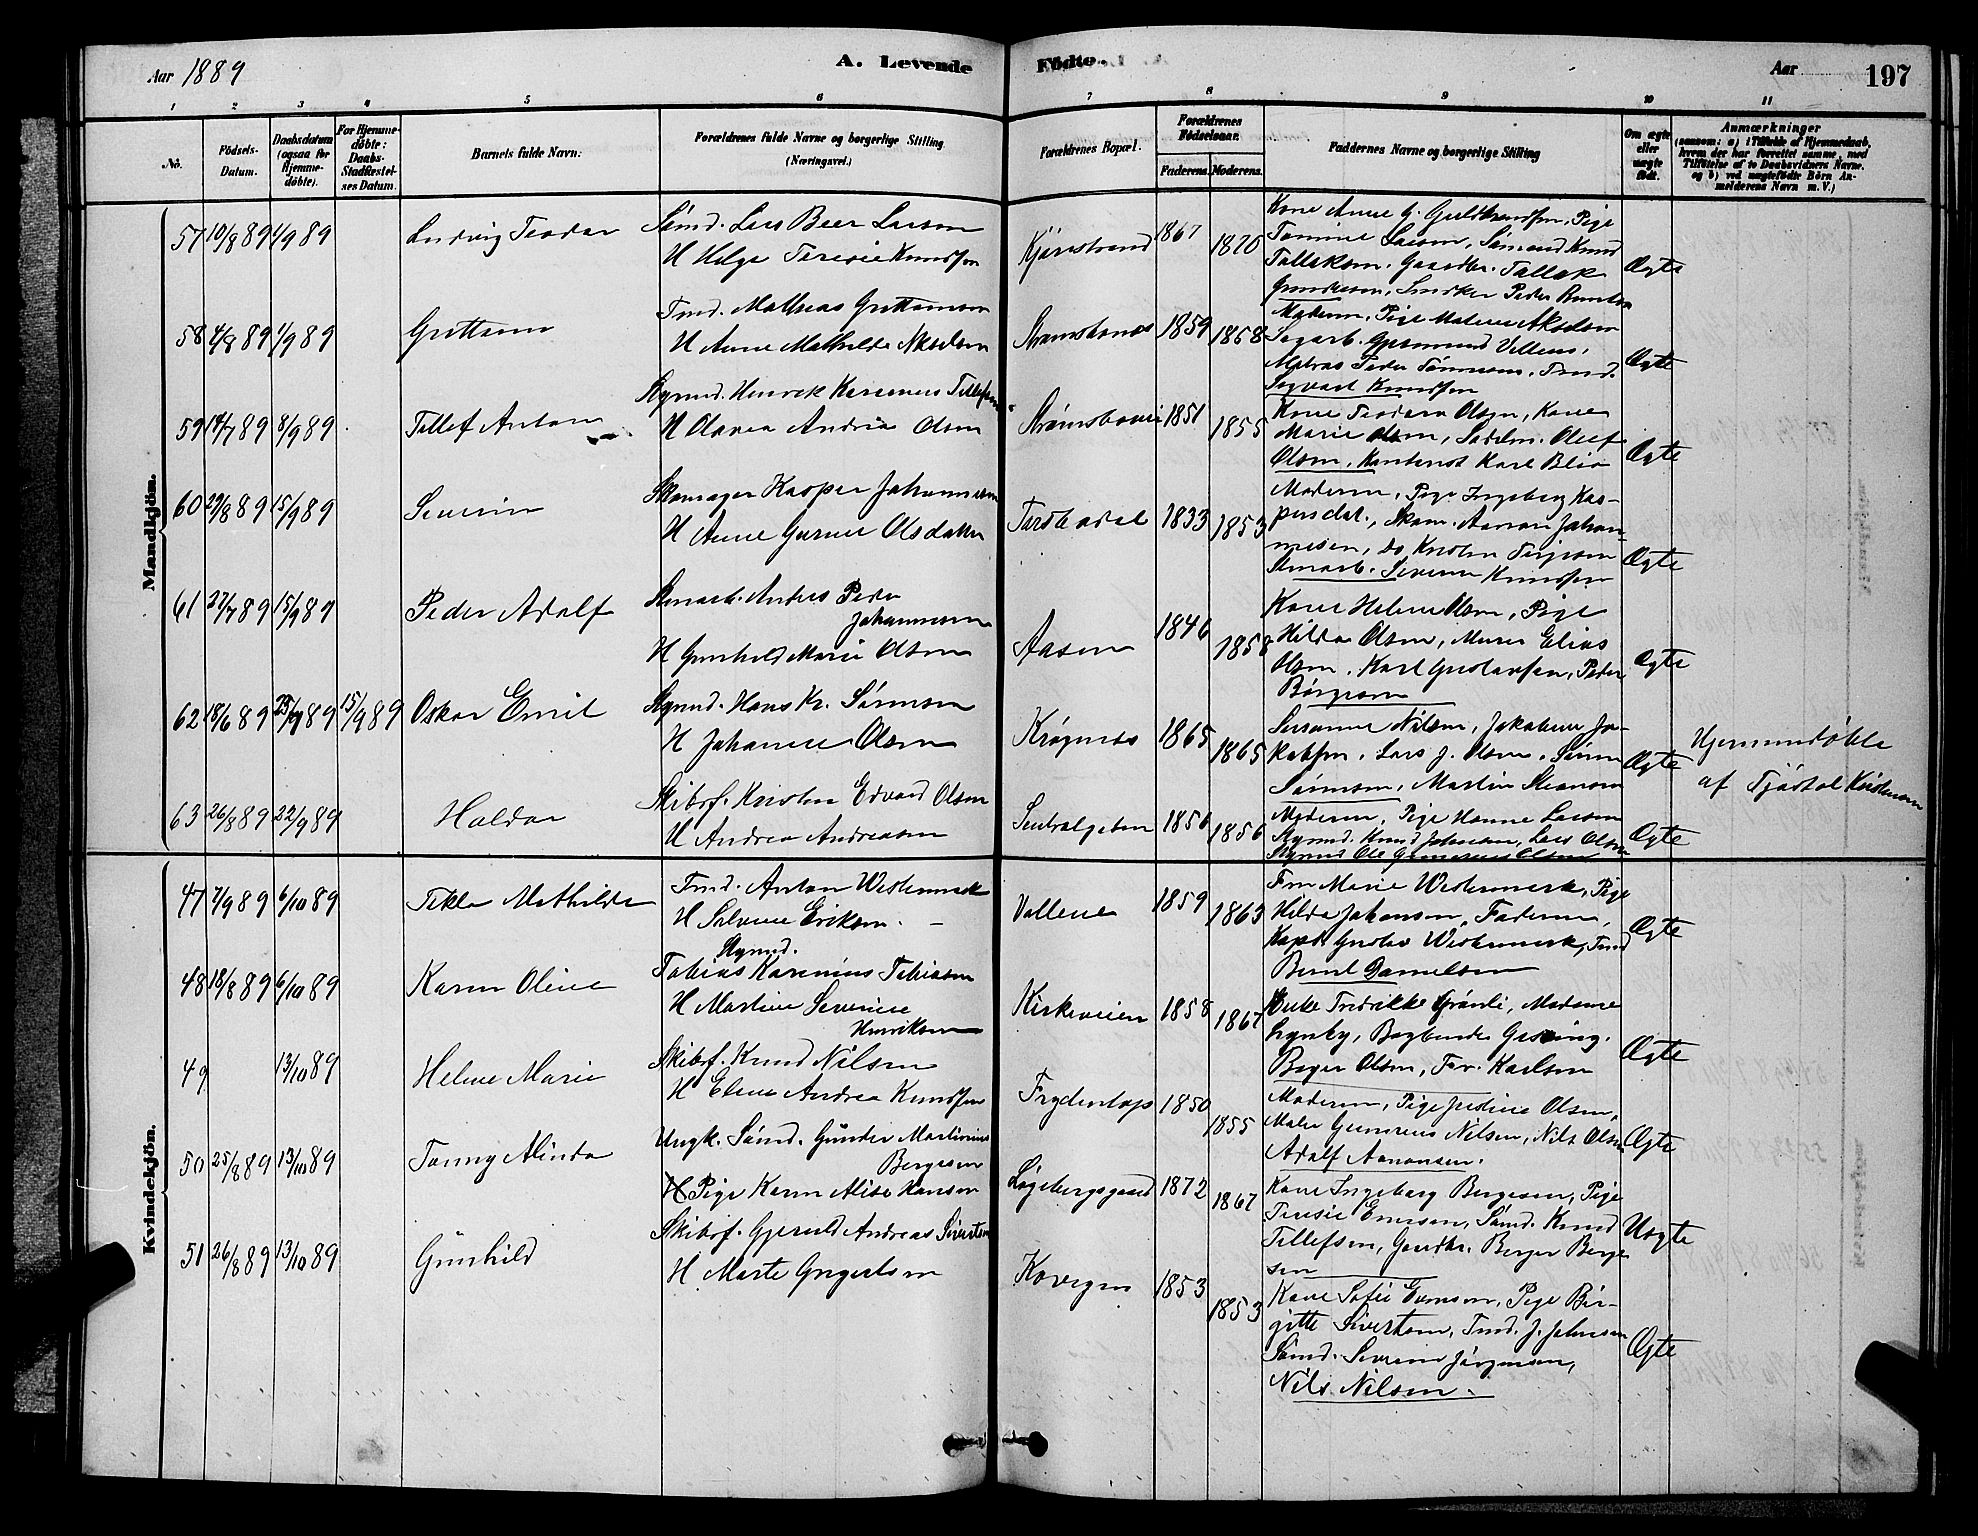 Aar 1889
A. Levende
Fødte.
Aar
197
1 2 3 4 5 6 7 8 9 10 11
No.
Fødsels-
Datum.
Daabsdatum
(ogsaa for
Hjemme-
døbte).
For Hjemme-
døbte:
Daabs-
Stadfæstel-
ses Datum.
Barnets fulde Navn:
Forældrenes fulde Navne og borgerlige Stilling
(Næringsvei.)
Forældrenes Bopæl.
Forældrenes
Fødselsaar.
Faderens. Moderens.
Faddernes Navne og borgerlige Stilling
Om ægte
eller
uægte
født.
Anmærkninger
(saasom: a) i Tilfælde af Hjemmedaab,
hvem der har forrettet samme, med
Tilføielse af to Daabsvidners Navne,
og b) ved uægtefødte Børn An-
melderens Navn m. V.)
Mandkjøn.
57 10/8 89 1/9 89 Ludvig Teodor
Sømd. Lars Beer Larsen
H Helga Teresie Knudsen
Kjørstrand 1867 1870
Kone Anne G. Guldbrandsen, Pige
Tomine Larsen, Sømand Knud
Tallaksen. Gaardbr. Tallak
Ægte
58 4/8 89 1/9 89 Guttorm
Tmd. Mathias Guttormsen
H Anne Mathilde Akselsen
Strømsboneset 1859 1868
Moderen, Pige Malene Akselsen
Sagarb. Gjermund Vellene,
Matros Peder Tønnesen, Tmd.
Sigvart Knudsen
Ægte
59 14/7 89 8/9 89 Tellef Anton
Styrmd. Henrik Karenius Tellefsen
H Olava Andrea Olsen
Strømsboveien 1851 1855
Kone Teodora Olsen, Kone
Marie Olsen, Sadelm. Oluf
Olsen, Kontorist Karl Bleie
Ægte
60 29/8 89 15/9 89 Severin
Skomager Kasper Johannesen
H Anne Gurine Olsdatter
Torsbudal 1833 1853
Moderen, Pige Ingeborg Kas-
persdat., Skom. Aanon Johan-
nesen, do Kristen Terjesen
Stenarb. Severin Knudsen
Ægte
61 27/7 89 15/9 89 Peder Adolf
Stenarb. Anders Peder
Johannesen
H Gunhild Marie Olsen
Aasen 1846 1858
Kone Helene Olsen, Pige
Hilda Olsen, Murer Elias
Olsen, Karl Gustavsen, Peder
Børgesen
Ægte
62 18/6 89 23/9 89 15/9 89 Oskar Emil
Styrmd. Hans Kr. Sørensen
H Johanne Olsen
Krøgenes 1865 1865
Susanne Nilsen, Jakobine Ja-
kobsen, Lars J. Olsen, Søren
Sørensen, Martin Steansen
Ægte
Hjemmedøbte
af Tjøstol Kristensen
63 26/8 89 22/9 89 Haldor
Skibsf. Kristen Edvard Olsen
H Andrea Andreasen
Sentralgaten 1856 1856
Moderen, Pige Hanne Larsen
Styrmd. Knud Johnsen, Lars Olsen
Styrmd Ole Gunerius Olsen
Ægte
Kvindekjøn.
47 7/9 89 6/10 89 Tekla Mathilde
Tmd. Anton Westermerk
H Salvine Eriksen. —
Vollene 1859 1863
Fru Marie Westermerk, Pige
Hilda Johansen, Faderen,
Kapt. Gustav Westermerk, Tmd
Bernt Danielsen
Ægte
48 18/8 89 6/10 89 Karen Oline
Styrmd.
Tobias Karenius Tobiasen
H Martine Severine
Henriksen
Kirkeveien 1858 1867
Enke Fredrikke Grønli, Madame
Lynby, Bogbinder Grøsing.
Berger Olsen, Fr. Karlsen
Ægte
49 13/10 89 Helene Marie
Skibsf. Knud Nilsen
H Elene Andrea Knudsen
Frydentop 1850 1855
Moderen, Pige Justine Olsen,
Maler Gunerius Nilsen, Nils Olsen
Adolf Aanonsen.
Ægte
50 25/8 89 13/10 89 Tonny Alinda
Ungk. Sømd. Gunder Martinius
Bergesen
Pige Karen Alise Hansen
Løgebergsgaard 1872 1867
Kone Ingeborg Bergesen, Pige
Teresie Evensen, Sømd. Knud
Tellefsen, Gaardbr. Berger Berge-
sen
Uægte
51 26/8 89 13/10 89 Gunhild
Skibsf. Gjeruld Andreas Sivertsen
H Marte Gregertsen
Kovigen 1853 1853
Kone Sofie Evensen, Pige Bir-
gitte Sivertsen, Tmd. J. Johnsen
Sømd. Severin Jørgensen,
Nils Nilsen.
Ægte